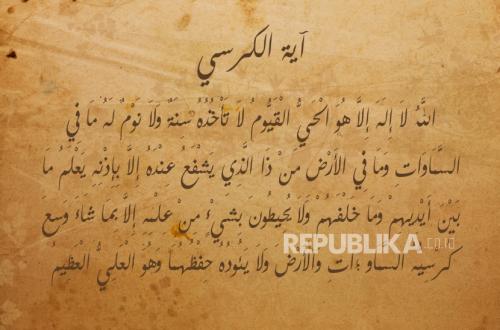 آية الكرسي
اللَّهُ لاَ إِلَهَ إِلاَّ هُوَ الْحَيُّ الْقَيُّومُ لاَ تَأْخُذُهُ سِنَةٌ وَلاَ نَوْمٌ لَهُ مَا فِي
السَّاوَاتِ وَمَا فِي الأَرْضِ مَنْ ذَا الَّذِي يَشْفَعُ عِنْدَهُ إِلاَّ بِإِذْنِهِ يَعْلَمُ مَا
بَيْنَ أَيْدِيهِمْ وَمَا خَلْفَهُمْ وَلاَ يُحِيطُونَ بِشَيْءٍ مِنْ عِلْمِهِ إِلاَّ بِمَا شَاءَ وَسِعَ
كُرْسِيُّهُ السَّاو ؛اتِ وَالأَرْضَ وَلاَ يَئُودُهُ حِفْظُهُمَا وَهُوَ الْعَلِيُّ الْعَظِيمُ
REPUBLIKA.co.id